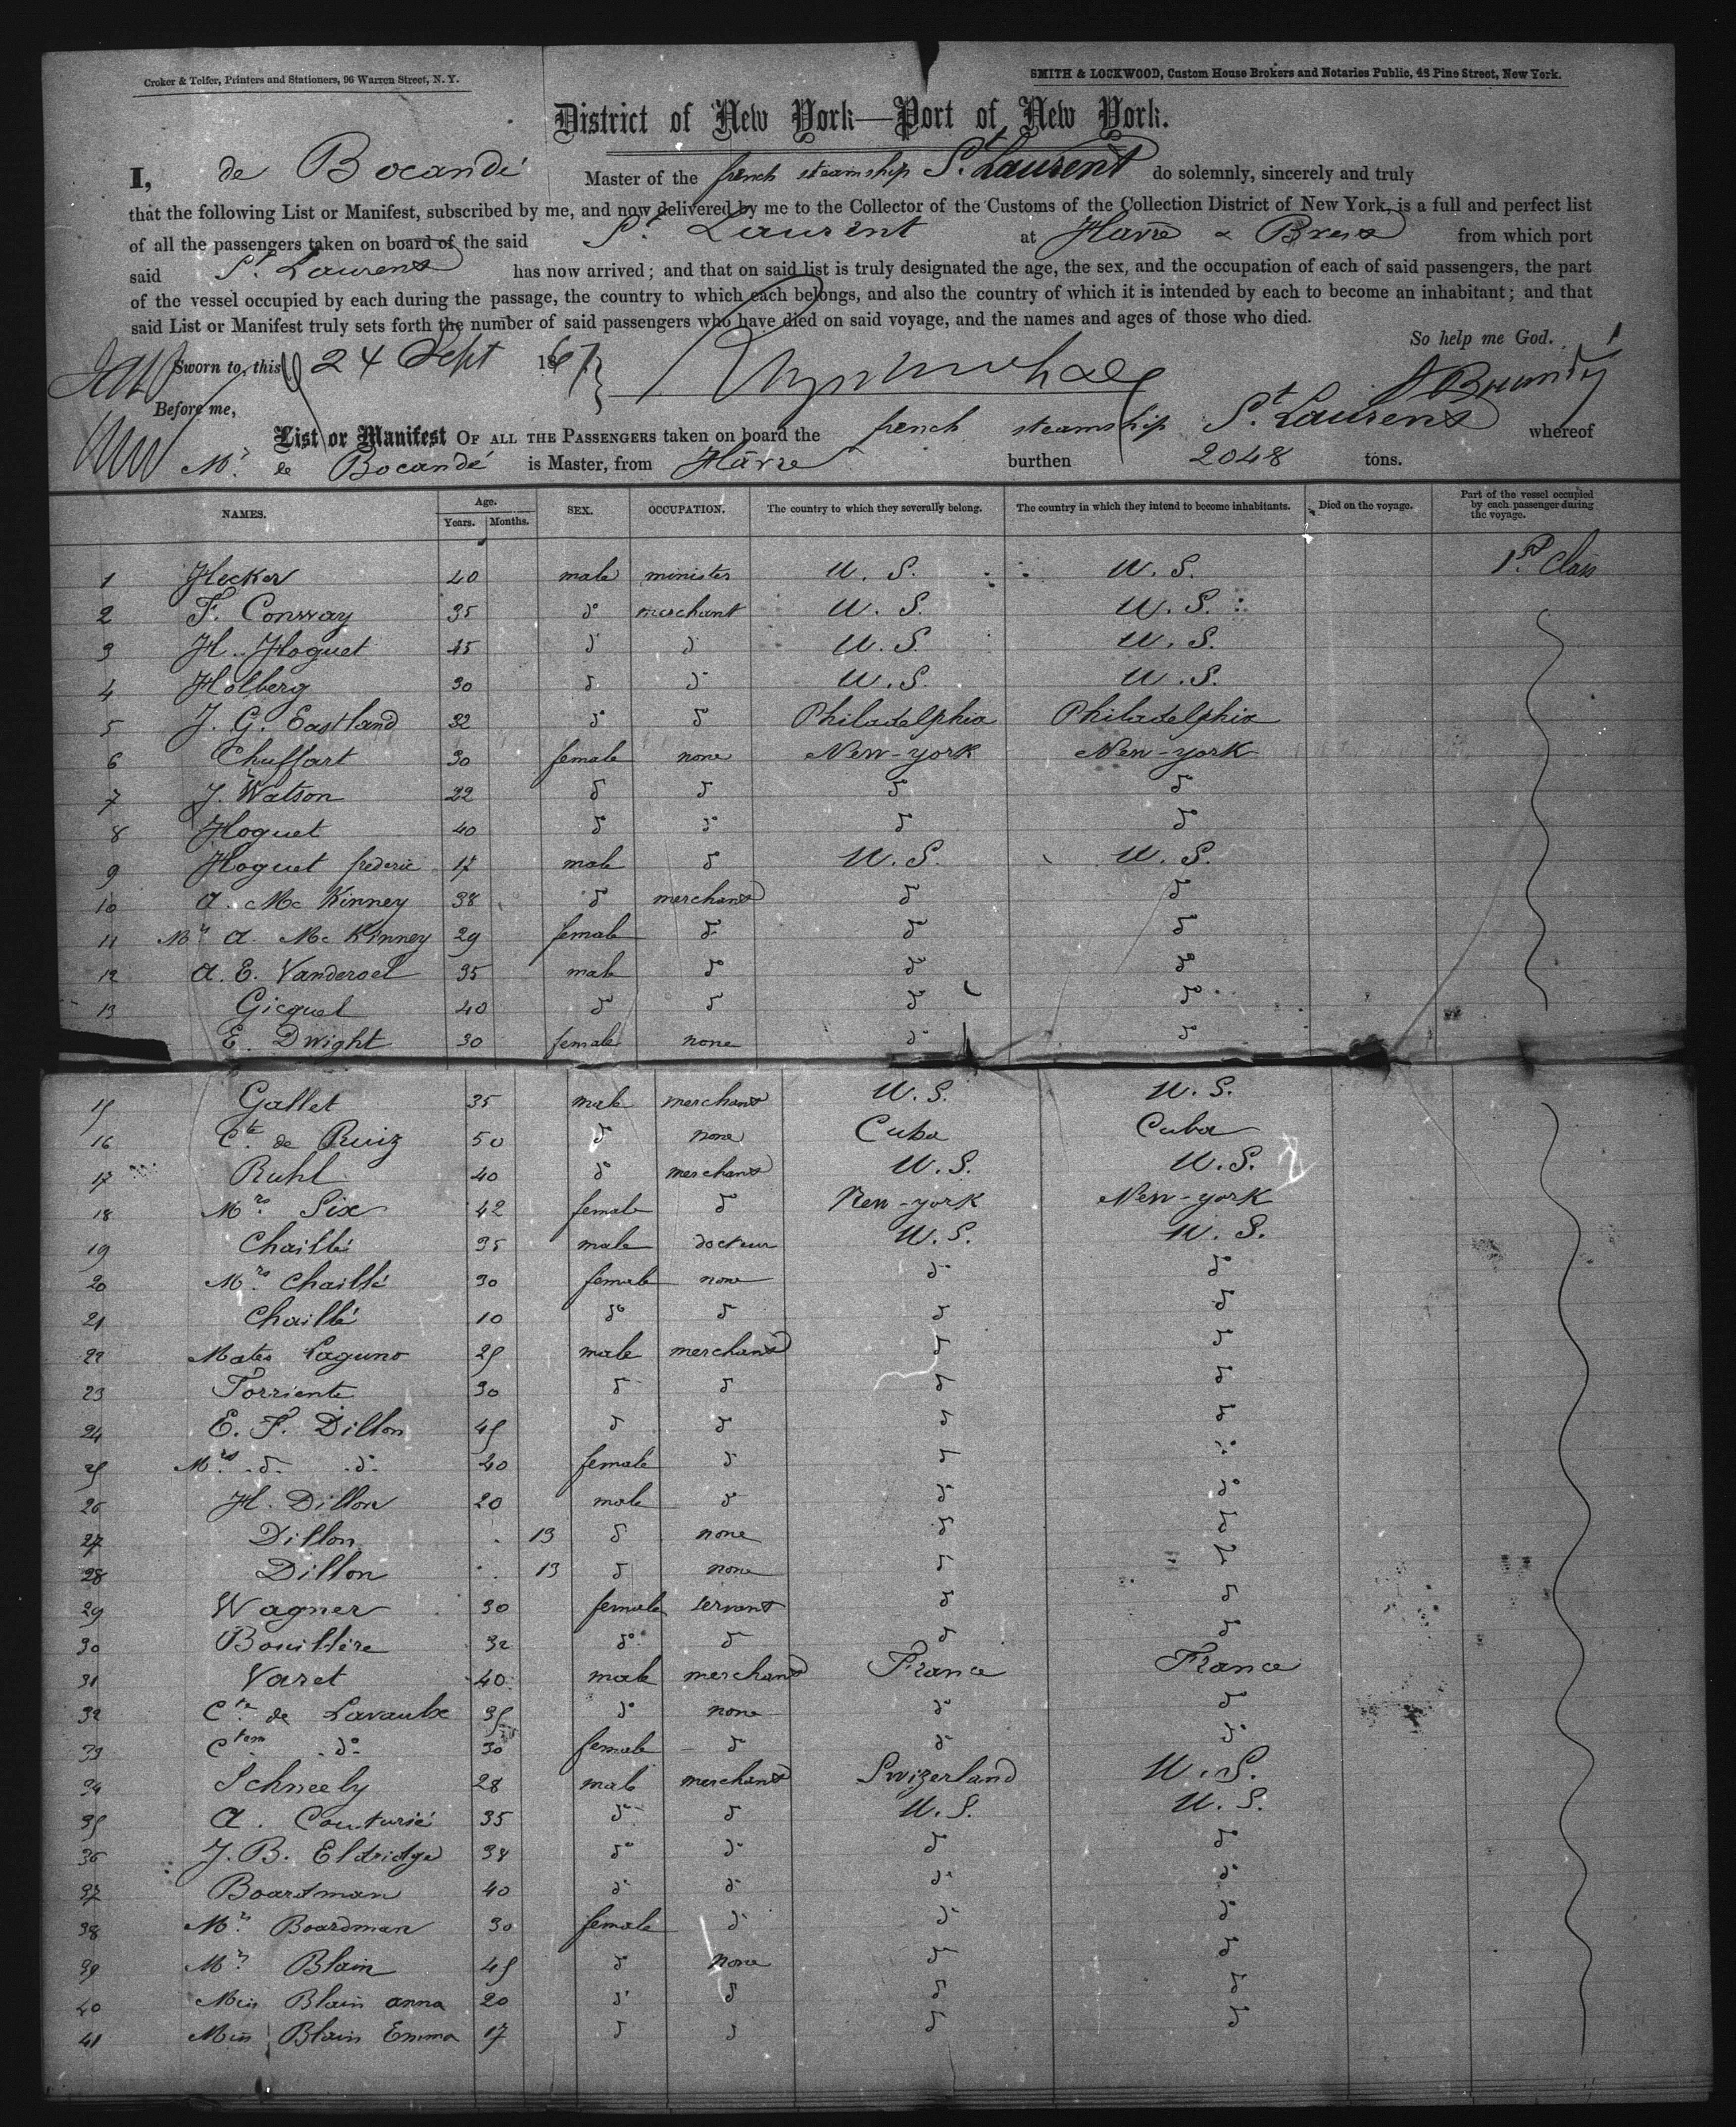 Croker & Telfer, Printers and Stationers, 96 Warren Street, N. Y.
SMITH & LOCKWOOD, Custom House Brokers and Notaries Public, 48 Pine Street, New York.
District of New York—Port of New York.
I, de Bocandé Master of the french steamship St. Laurent do solemnly, sincerely and truly
that the following List or Manifest, subscribed by me, and now delivered by me to the Collector of the Customs of the Collection District of New York, is a full and perfect list
of all the passengers taken on board of the said St. Laurent at Havre & Brest from which port
said St. Laurent has now arrived; and that on said list is truly designated the age, the sex, and the occupation of each of said passengers, the part
of the vessel occupied by each during the passage, the country to which each belongs, and also the country of which it is intended by each to become an inhabitant; and that
said List or Manifest truly sets forth the number of said passengers who have died on said voyage, and the names and ages of those who died.
So help me God.
Sworn to, this 24 Sept 1867
Before me,
List or Manifest OF ALL THE PASSENGERS taken on board the french steamship St. Laurent whereof
Mr. de Bocandé is Master, from Hâvre burthen 2048 tons.
NAMES. Age. Years. Months. SEX. OCCUPATION. The country to which they severally belong. The country in which they intend to become inhabitants. Died on the voyage. Part of the vessel occupied by each passenger during the voyage.
1 Hecker 40 male minister U. S. U. S. 1st Class
2 F. Conway 35 do merchant U. S. U. S.
3 H. Hoguet 45 do do U. S. U. S.
4 Holberg 30 do do U. S. U. S.
5 J. G. Eastland 32 do do Philadelphia Philadelphia
6 Chuffart 30 female none New-york New-york
7 J. Watson 22 do do do do
8 Hoguet 40 do do do do
9 Hoguet frederic 17 male do U. S. U. S.
10 A. Mc Kinney 38 do merchant do do
11 Mrs A. Mc Kinney 29 female do do do
12 A. E. Vanderoel 35 male do do do
13 Gicquel 40 do do do do
E. Dwight 30 female none do do
15 Gallet 35 male merchant U. S. U. S.
16 Cte de Ruiz 50 do none Cuba Cuba
17 Ruhl 40 do merchant U. S. U. S.
18 Mrs. Six 42 female do New-york New-york
19 Chaillé 35 male docteur U. S. U. S.
20 Mrs Chaillé 30 female none do do
21 Chaillé 10 do do do do
22 Mateo Laguno 25 male merchant do do
23 Torriente 30 do do do do
24 E. F. Dillon 45 do do do do
25 Mrs do do 40 female do do do
26 H. Dillon 20 male do do do
27 Dillon 13 do none do do
28 Dillon 13 do none do do
29 Wagner 30 female servant do do
30 Bouillère 32 do do do do
31 Varet 40 male merchant France France
32 Cte de Lavaulx 35 do none do do
33 Ctesse do 30 female do do do
34 Schneely 28 male merchant Swizerland U. S.
35 A. Couturié 35 do do U. S. U. S.
36 J. B. Eldridge 38 do do do do
37 Boardman 40 do do do do
38 Mrs. Boardman 30 female do do do
39 Mrs. Blain 45 do none do do
40 Miss Blain anna 20 do do do do
41 Miss Blain Emma 17 do do do do